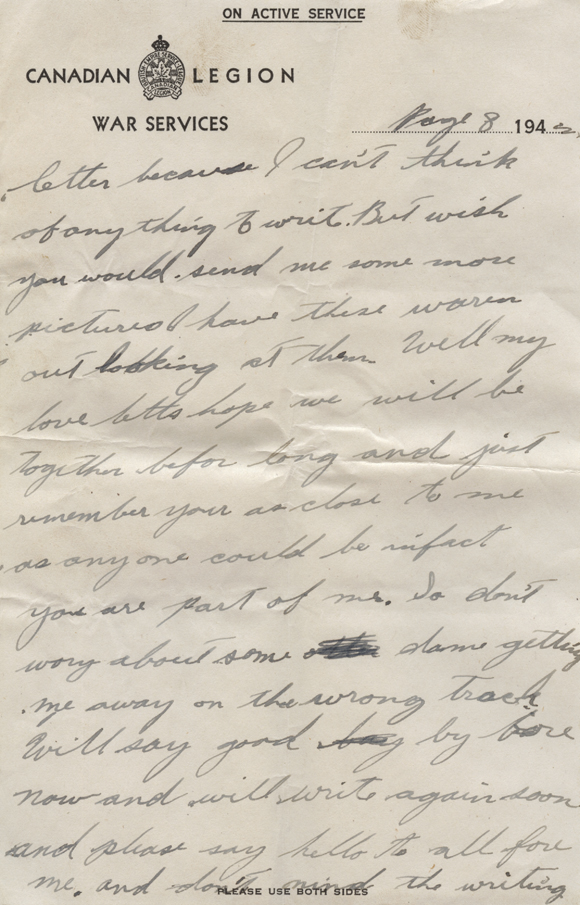 ON ACTIVE SERVICE
CANADIAN LEGION
WAR SERVICES
Page 8 194
letter because I can't think
of anything to writ. But wish
you would send me some more
pictures I have these waren
out looking at them. Well my
love letts hope we will be
together befor long and just
remember your as close to me
as anyone could be infact
you are part of me. So don't
wory about some dame getting
me away on the wrong track
Will say good by fore
now and will write again soon
and please say hello to all fore
me. and don't mind the writing
PLEASE USE BOTH SIDES